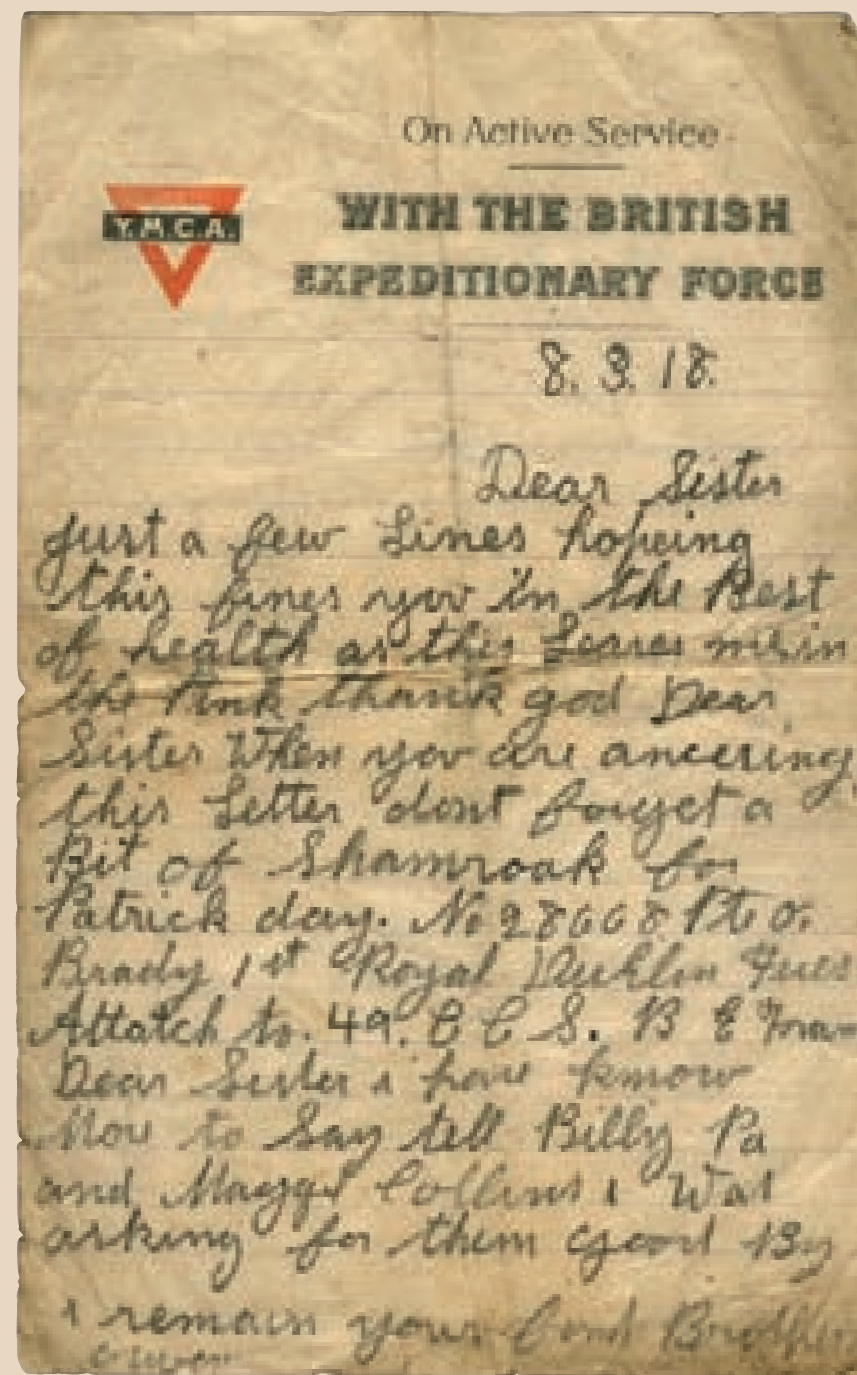 On Active Service
Y.M.C.A.
WITH THE BRITISH
EXPEDITIONARY FORCE
8. 3. 18.
Dear Sister
Just a few Lines hopeing
this fines you in the Best
of health as this Leaves me in
the Pink thank god Dear
Sister When you are ancering
this Letter dont forget a
Bit of Shamroak for
Patrick day. No 28668 Pte O.
Brady 1st Royal Dublin Fues
Attatch to. 49. C C S. B E
Dear Sister i have know
More to Say tell Billy Pa
and Maggi Collins i Was
asking for them good By
i remain your fond Brother